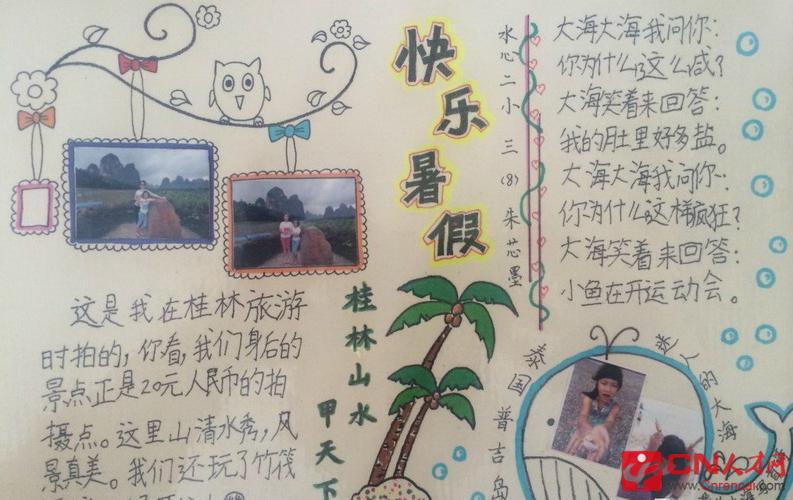 快乐暑假
水心二小三(8)朱芯墨
大海大海我问你：
你为什么这么咸？
大海笑着来回答：
我的肚里好多盐。
大海大海我问你：
你为什么这样疯狂？
大海笑着来回答：
小鱼在开运动会。
这是我在桂林旅游
时拍的，你看，我们身后的
景点正是20元人民币的拍
摄点。这里山清水秀，风
景真美。我们还玩了竹筏
桂林山水
甲天下
泰国普吉岛
迷人的大海
CN人才网
www.cnrencai.com